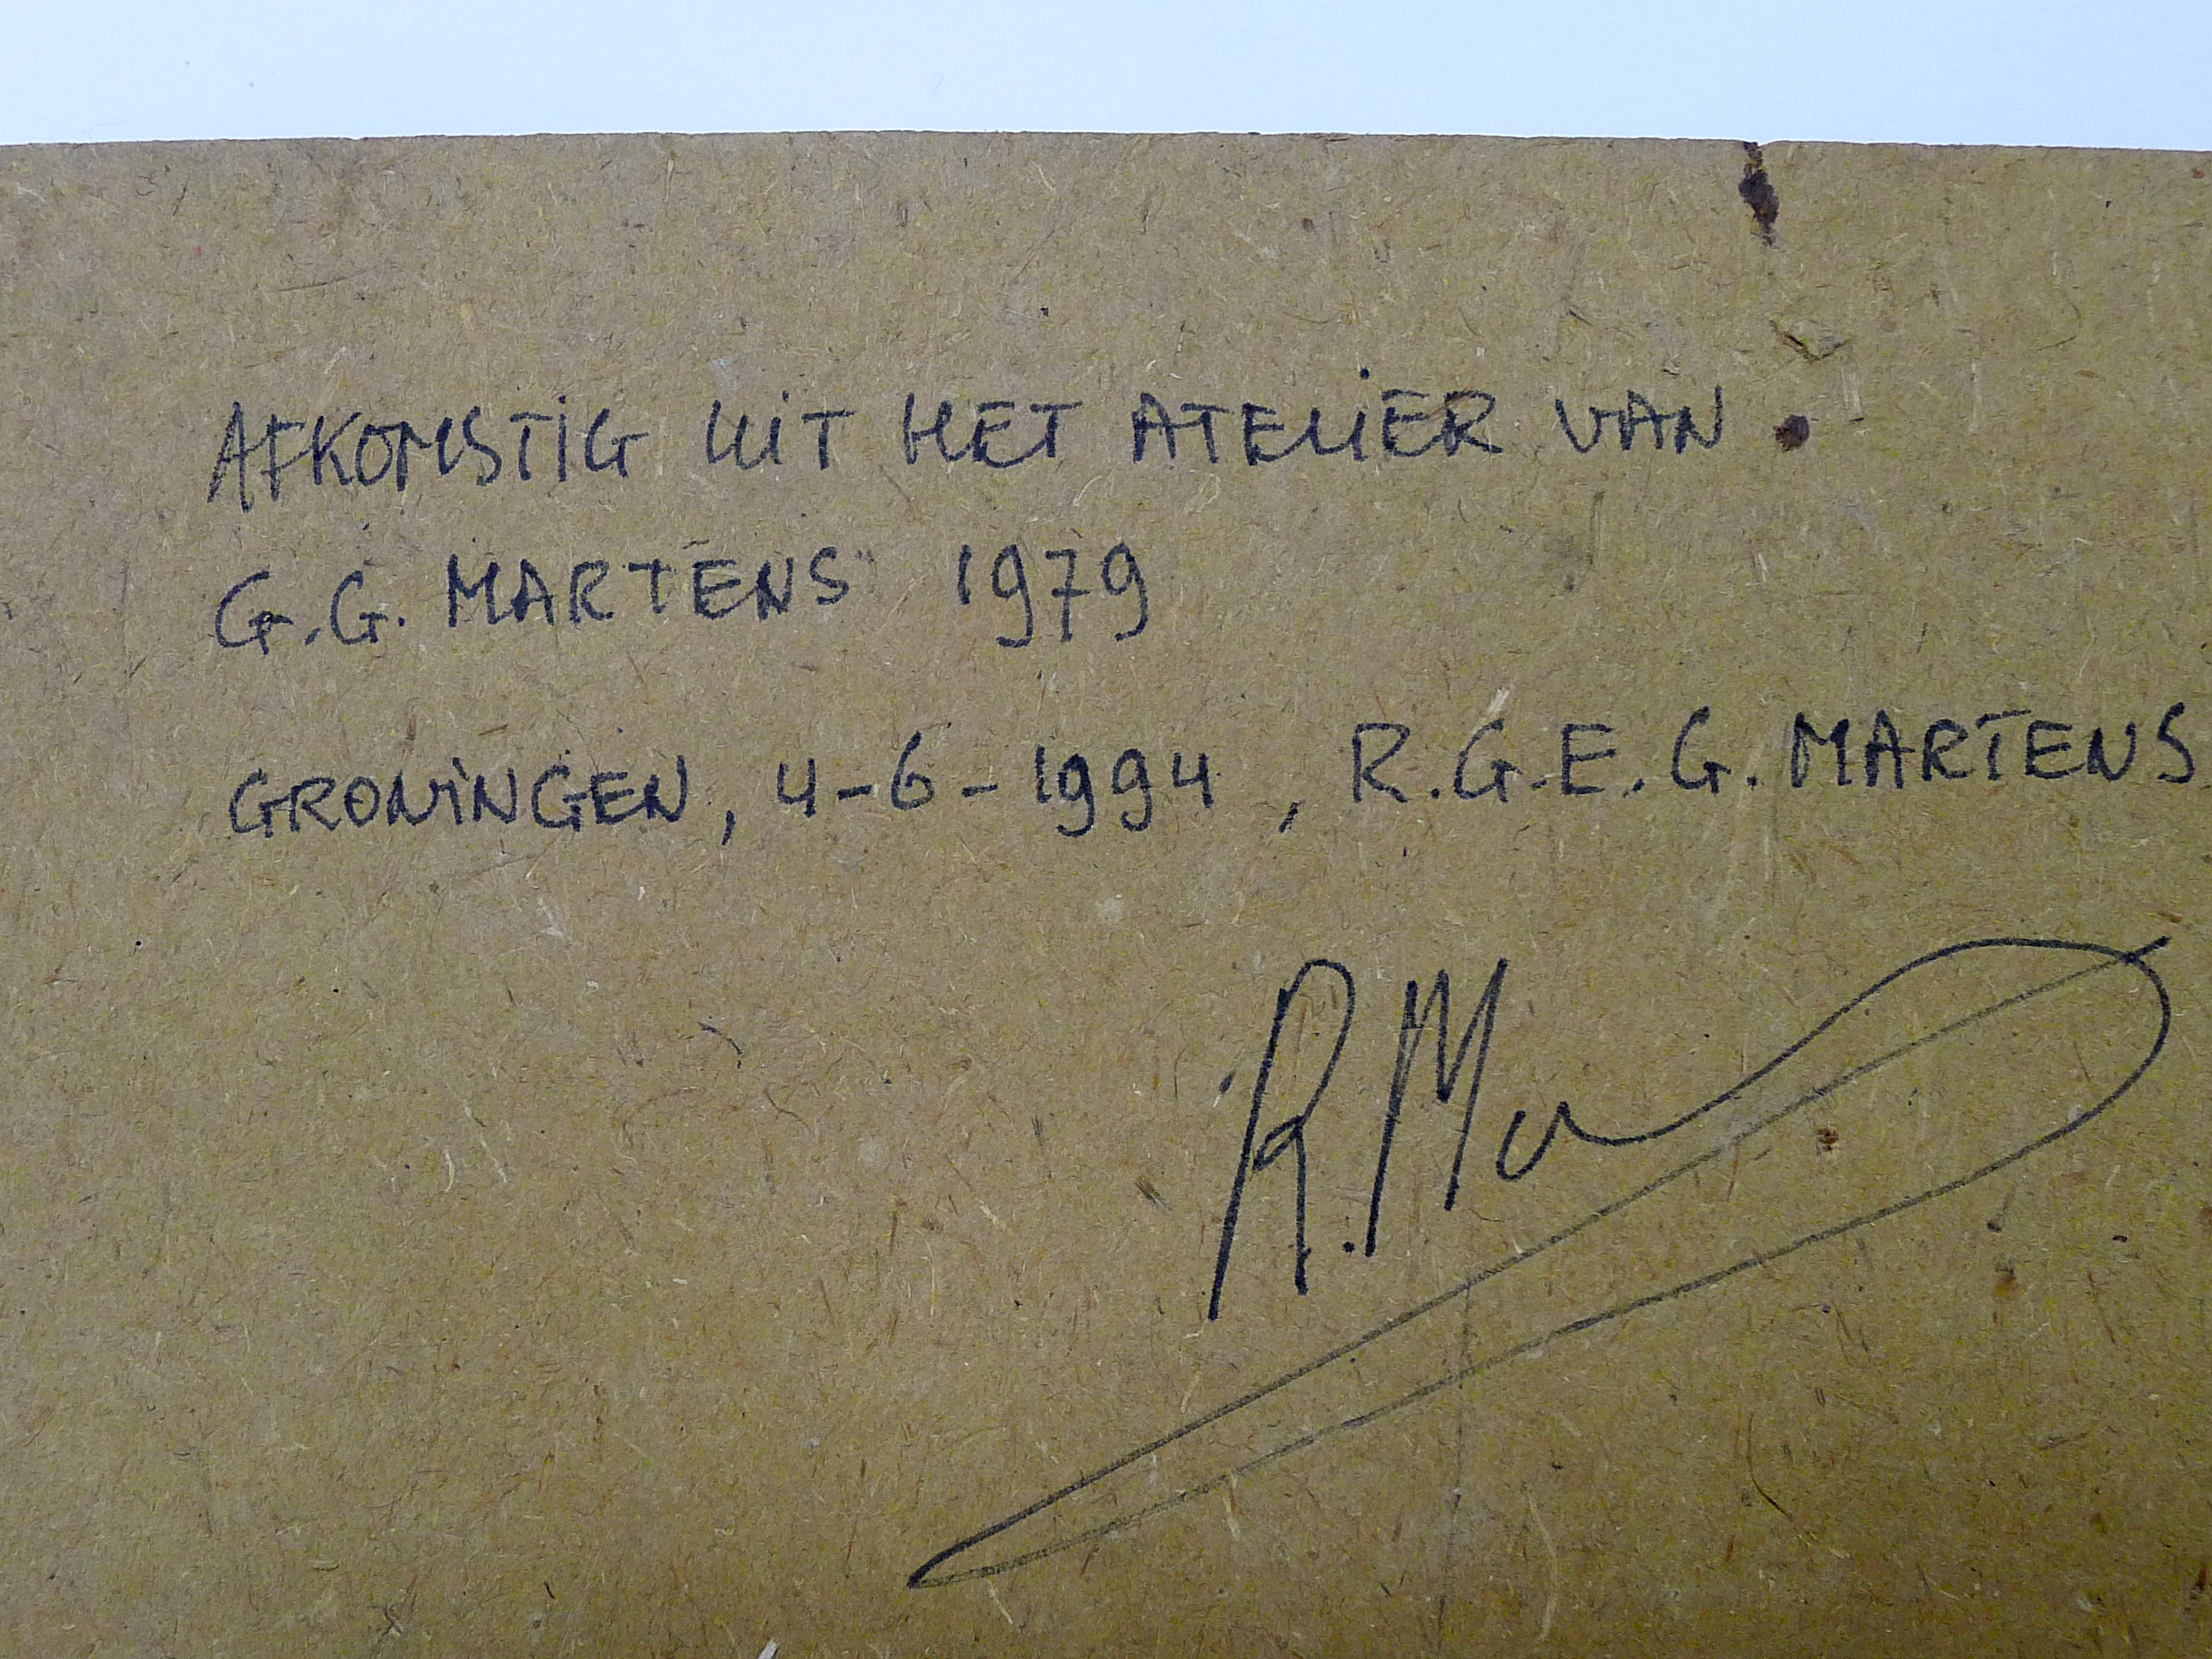 AFKOMSTIG UIT HET ATELIER VAN
G.G. MARTENS 1979
GRONINGEN, 4-6-1994, R.G.E.G. MARTENS
R.Ma